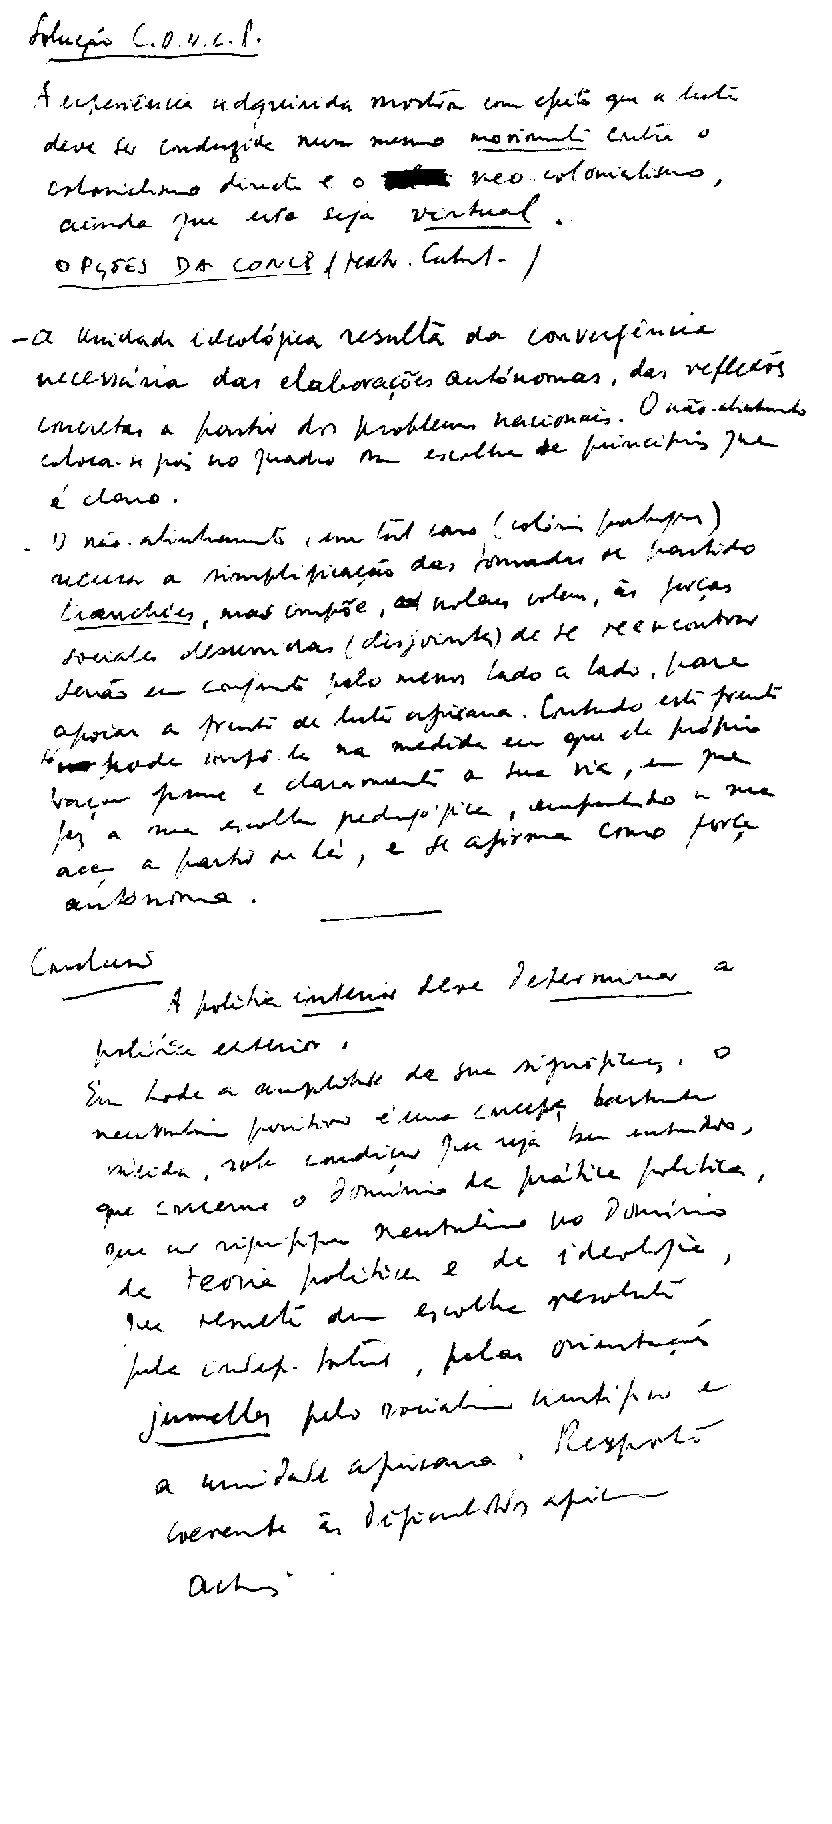 Solução C.O.N.C.P.
A experiência adquirida mostra com efeito que a luta
deve ser conduzida num mesmo movimento contra o
colonialismo directo e o neo colonialismo,
ainda que este seja virtual.
OPÇÕES DA CONCP (
- a unidade ideológica resulta da convergência
necessária das elaborações autónomas, das reflexões
concretas a partir dos problemas nacionais. O não-alinhamento
coloca-se pois no quadro duma escolha de princípios que
é claro.
- O não-alinhamento, em tal caso (colónias portuguesas)
recusa a simplificação das tomadas de partido
tranchées, mas impõe, nolens volens, às forças
sociales desunidas (disjointes) de se reencontrar
senão em conjunto pelo menos lado a lado, para
apoiar a frente de luta africana. Contudo esta frente
só pode impô-la na medida em que ela própria
traçou firme e claramente a sua via, em que
fez a sua escolha pedagógica, a sua
acção a partir de lá, e se afirma como força
autónoma.
Conclusão
A política interior deve determinar a
política exterior.
Em toda a amplitude da sua significação, o
neutralismo positivo é uma concepção bastante
, sob condição que seja bem entendido,
que concerne o domínio da prática política,
que não significa neutralismo no domínio
da teoria política e da ideologia,
que remete duma escolha resoluta
pela indep. total, pelas orientações
jumelles pelo socialismo científico e
a unidade africana. Resposta
coerente às dificuldades africanas
actuais.